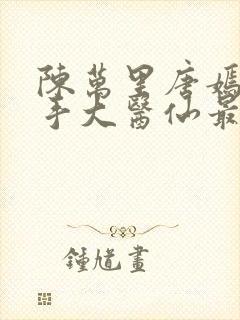 陳萬里唐嫣
手大醫仙最
鍾馗畫